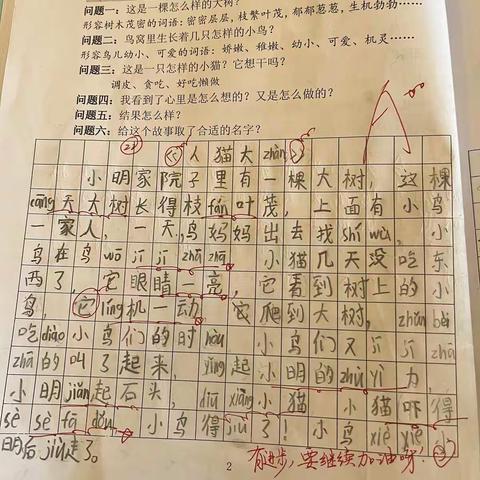 问题一：这是一棵怎么样的大树？
形容树木茂密的词语：密密层层，枝繁叶茂，郁郁葱葱，生机勃勃……
问题二：鸟窝里生长着几只怎样的小鸟？
形容鸟儿幼小、可爱的词语：娇嫩、稚嫩、幼小、可爱、机灵……
问题三：这是一只怎样的小猫？它想干吗？
调皮、贪吃、好吃懒做
问题四：我看到了心里是怎么想的？又是怎么做的？
问题五：结果怎么样？
问题六：给这个故事取了合适的名字？
人猫大zhàn
小明家院子里有一棵大树，这棵
cāng天大树长得枝fán叶茂，上面有小鸟
一家人，一天，鸟妈妈出去找shí wù，小
鸟在鸟wō jī jī zhā zhā，小猫几天没吃东
西了，它眼睛一亮，它看到树上的小
鸟，它líng机一动，它爬到大树，zhǔn bèi
吃diào小鸟们的时hòu，小鸟们又jī jī zhā
zhā的叫了起来，yǐng起小明的zhù yì力，
小明jiǎn起石头，diū xiàng小猫，小猫吓得
sè sè fā dǒu，小鸟得jiù了！小鸟xiè xiè小
明后jiù走了。
2
有进步，要继续加油呀！